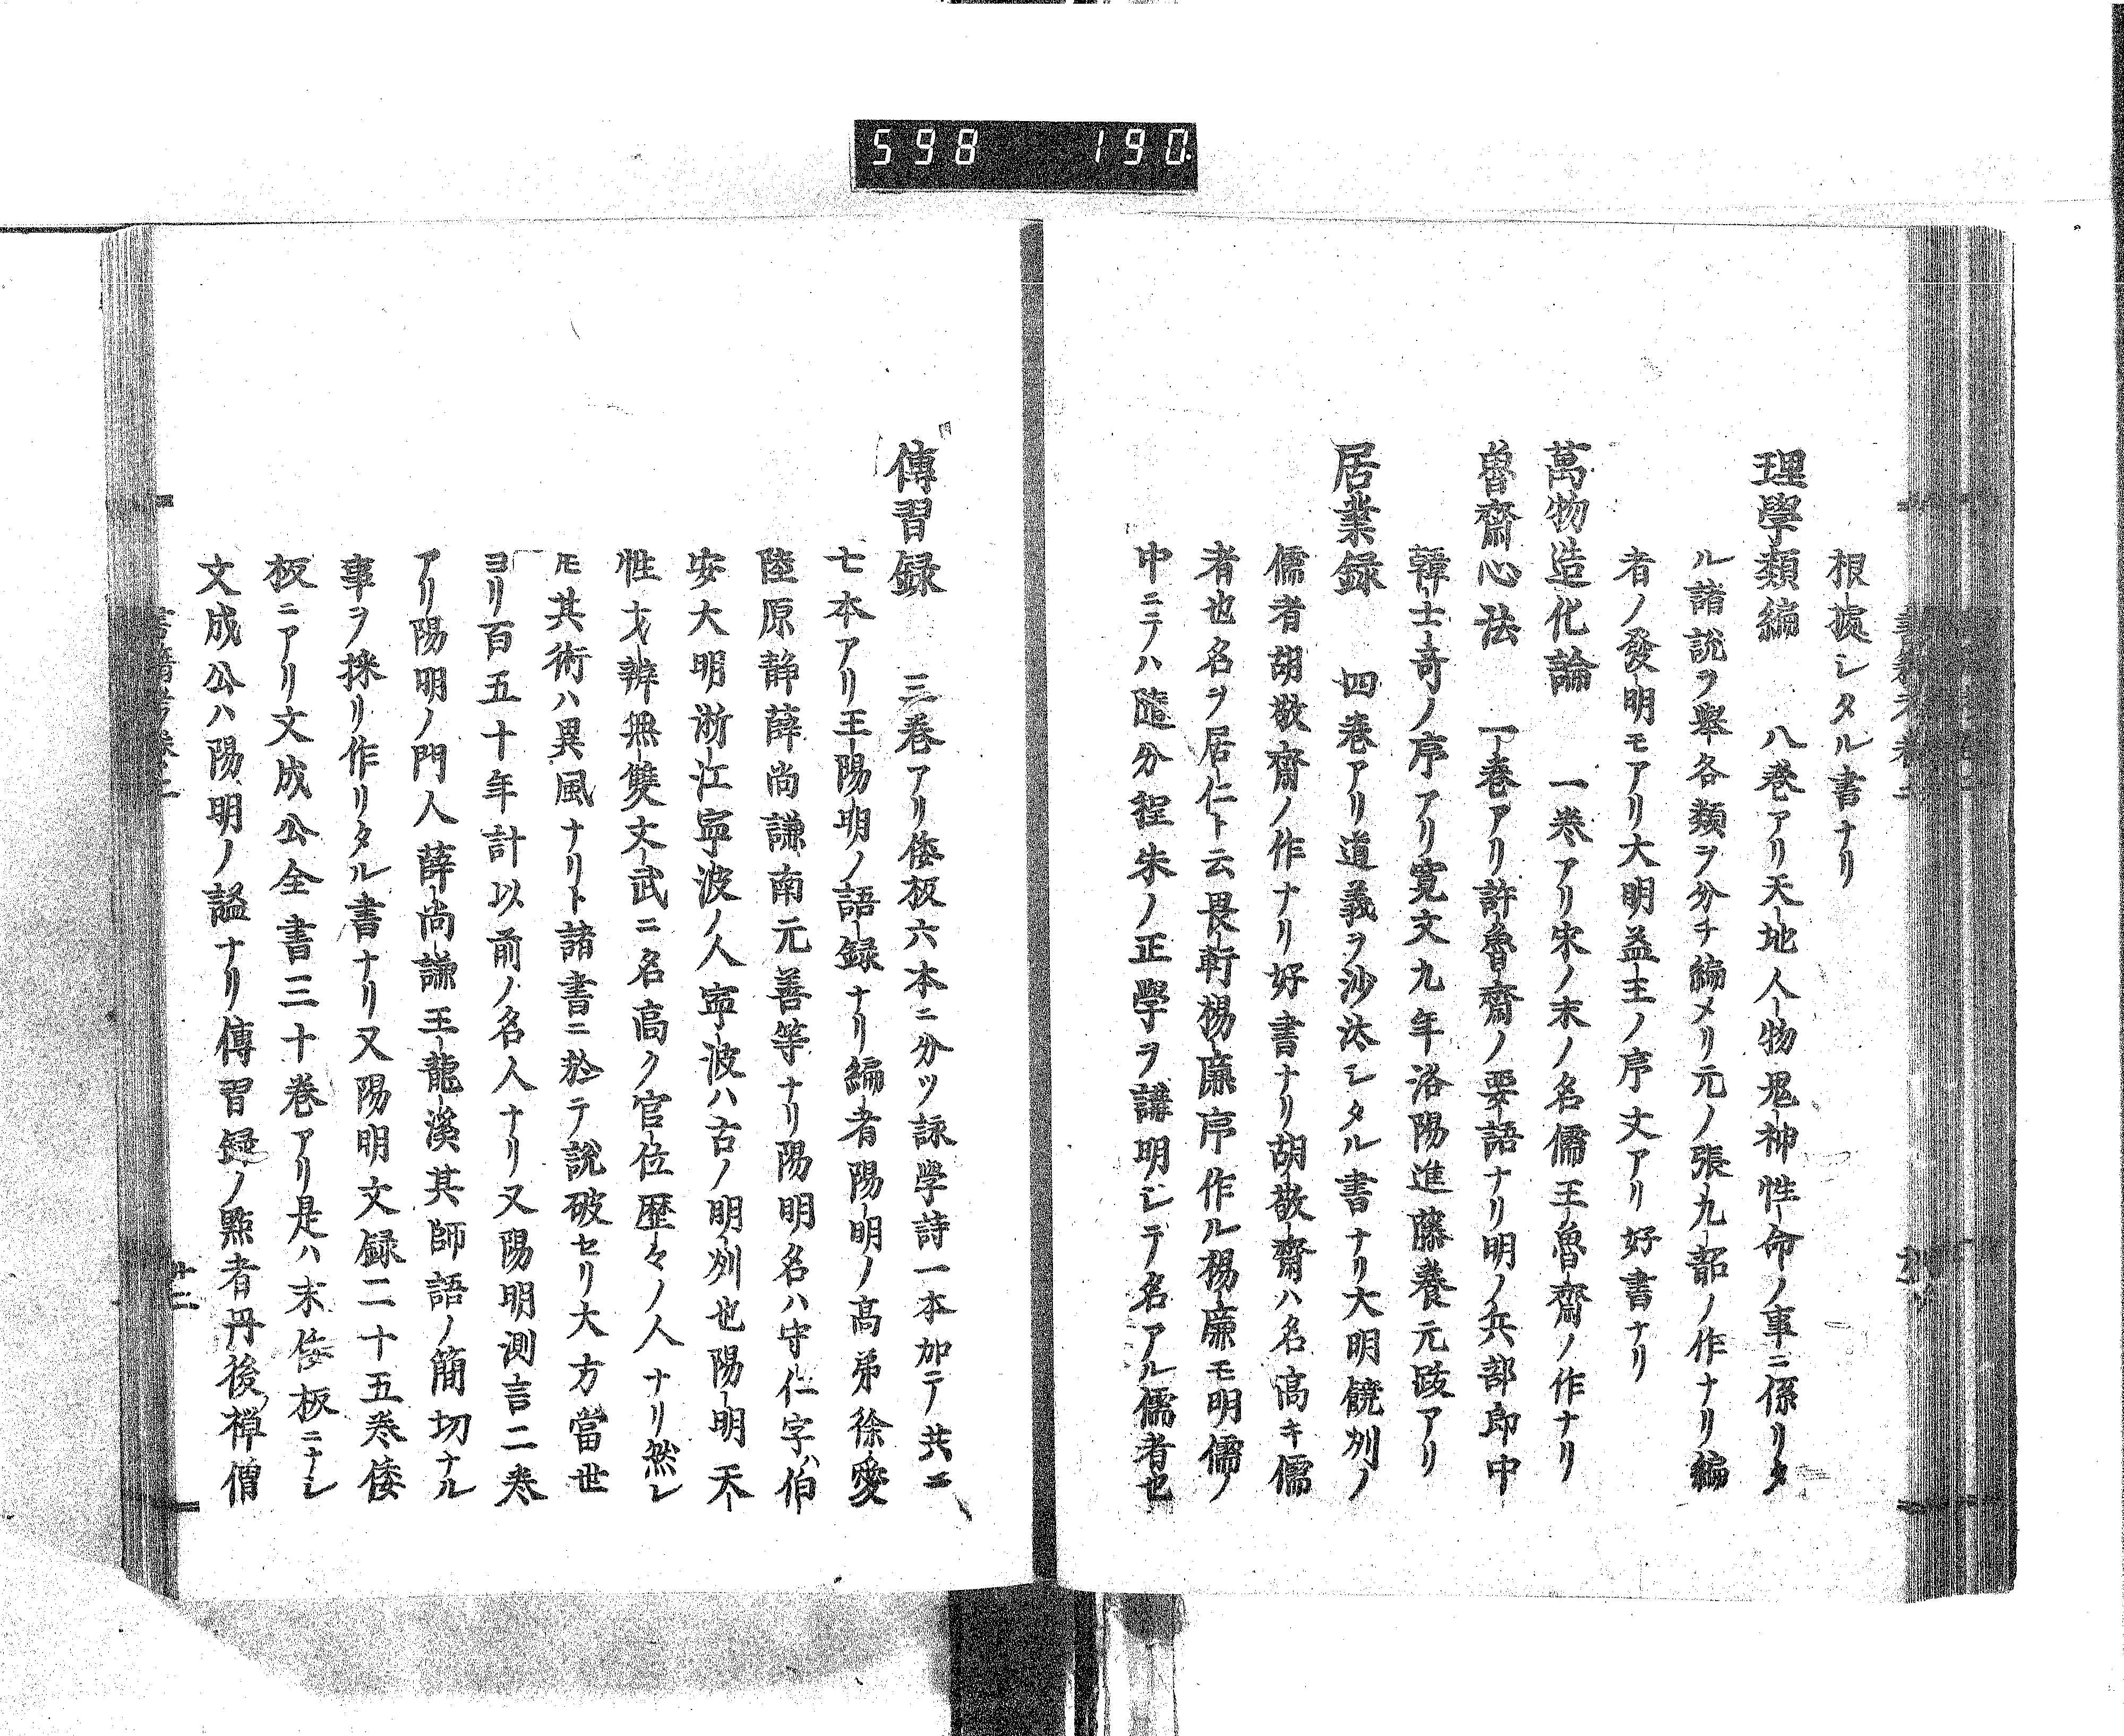 598 190
根據シタル書ナリ
理學類編 八巻アリ天地人物鬼神性命ノ事ニ係リタ
ル諸説ヲ舉各類ヲ分チ編メリ元ノ張九韶ノ作ナリ編
者ノ發明モアリ大明益王ノ序文アリ好書ナリ
萬物造化論 一巻アリ宋ノ末ノ名儒王魯齋ノ作ナリ
魯齋心法 一巻アリ許魯齋ノ要語ナリ明ノ兵部郎中
韓士竒ノ序アリ寛文九年洛陽進藤養元跋アリ
居業録 四巻アリ道義ヲ沙汰シタル書ナリ大明饒州ノ
儒者胡敬齋ノ作ナリ好書ナリ胡敬齋ハ名高キ儒
者也名ヲ居仁ト云畏軒楊廉序作ル楊廉モ明儒ノ
中ニテハ隨分程朱ノ正學ヲ講明シテ名アル儒者也
傳習録 三巻アリ倭板六本ニ分ツ詠學詩一本加テ共ニ
七本アリ王陽明ノ語録ナリ編者陽明ノ高弟徐愛
陸原静薛尚謙南元善等ナリ陽明名ハ守仁字ハ伯
安大明浙江寧波ノ人寧波ハ古ノ明州也陽明天
性才辨無雙文武ニ名高ク官位歴々ノ人ナリ然レ
㪽其術ハ異風ナリト諸書ニ於テ説破セリ大方當世
ヨリ百五十年計以前ノ名人ナリ又陽明測言二巻
アリ陽明ノ門人薛尚謙王龍溪其師語ノ簡切ナル
事ヲ採リ作リタル書ナリ又陽明文録二十五巻倭
板ニアリ文成公全書三十巻アリ是ハ末倭板ニナシ
文成公ハ陽明ノ謚ナリ傳習録ノ㸃者丹後禅僧
書籍考巻之
廿二